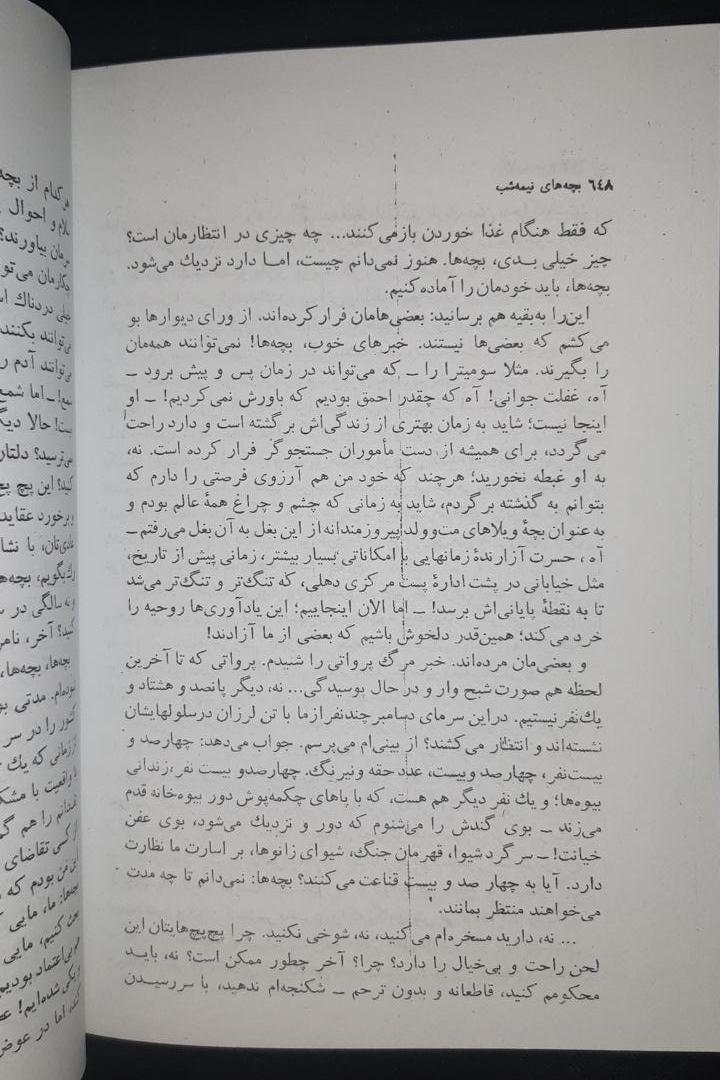 ۶۴۸ بچه‌های نیمه‌شب
که فقط هنگام غذا خوردن باز می‌کنند... چه چیزی در انتظارمان است؟
چیز خیلی بدی، بچه‌ها. هنوز نمی‌دانم چیست، اما دارد نزدیك می‌شود.
بچه‌ها، باید خودمان را آماده کنیم.
این را به‌بقیه هم برسانید: بعضی‌هامان فرار کرده‌اند. از ورای دیوارها بو
می‌کشم که بعضی‌ها نیستند. خبرهای خوب، بچه‌ها! نمی‌توانند همه‌مان
را بگیرند. مثلا سومیترا را ــ که می‌تواند در زمان پس و پیش برود ــ
آه، غفلت جوانی! آه که چقدر احمق بودیم که باورش نمی‌کردیم! ــ او
اینجا نیست؛ شاید به زمان بهتری از زندگی‌اش برگشته است و دارد راحت
می‌گردد، برای همیشه از دست مأموران جستجوگر فرار کرده است. نه،
به او غبطه نخورید؛ هرچند که خود من هم آرزوی فرصتی را دارم که
بتوانم به گذشته برگردم، شاید به زمانی که چشم و چراغ همهٔ عالم بودم و
به عنوان بچهٔ ویلاهای مت‌وولد پیروزمندانه از این بغل به آن بغل می‌رفتم ــ
آه، حسرت آزارندهٔ زمانهایی با امکاناتی بسیار بیشتر، زمانی پیش از تاریخ،
مثل خیابانی در پشت ادارهٔ پست مرکزی دهلی، که تنگ‌تر و تنگ‌تر می‌شد
تا به نقطهٔ پایانی‌اش برسد! ــ اما الان اینجاییم؛ این یادآوری‌ها روحیه را
خرد می‌کند؛ همین‌قدر دلخوش باشیم که بعضی از ما آزادند!
و بعضی‌مان مرده‌اند. خبر مرگ پرواتی را شنیدم. پرواتی که تا آخرین
لحظه هم صورت شبح وار و در حال پوسیدگی... نه، دیگر پانصد و هشتاد و
یك‌نفر نیستیم. در این سرمای دسامبر چند نفر از ما با تن لرزان در سلولهایشان
نشسته‌اند و انتظار می‌کشند؟ از بینی‌ام می‌پرسم. جواب می‌دهد: چهارصد و
بیست‌نفر، چهارصد وبیست، عدد حقه و نیرنگ. چهارصدو بیست نفر، زندانی
بیوه‌ها؛ و یك نفر دیگر هم هست، که با پاهای چکمه‌پوش دور بیوه‌خانه قدم
می‌زند ــ بوی گندش را می‌شنوم که دور و نزدیك می‌شود، بوی عفن
خیانت! ــ سرگرد شیوا، قهرمان جنگ، شیوای زانوها، بر اسارت ما نظارت
دارد. آیا به چهار صد و بیست قناعت می‌کنند؟ بچه‌ها: نمی‌دانم تا چه مدت
می‌خواهند منتظر بمانند.
... نه، دارید مسخره‌ام می‌کنید، نه، شوخی نکنید. چرا پچ‌پچ‌هایتان این
لحن راحت و بی‌خیال را دارد؟ چرا؟ آخر چطور ممکن است؟ نه، باید
محکومم کنید، قاطعانه و بدون ترحم ــ شکنجه‌ام ندهید، با سررسیدن